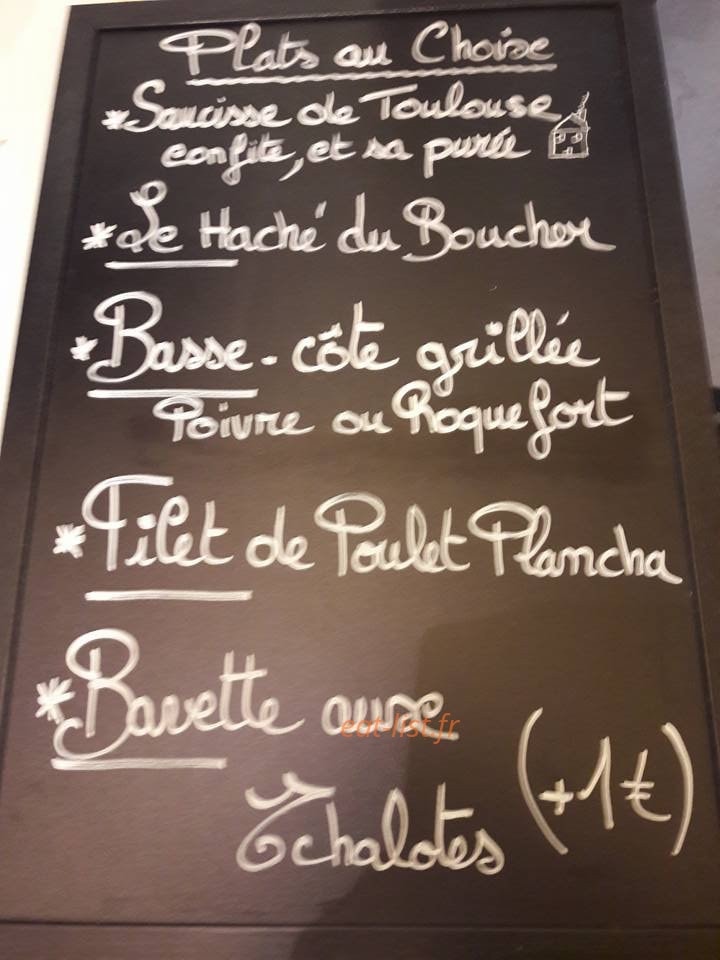 Plats au Choix
*Saucisse de Toulouse
confite, et sa purée
*Le Haché du Boucher
*Basse-côte grillée
Poivre ou Roquefort
*Filet de Poulet Plancha
*Bavette aux
eat-list.fr
Echalotes (+1€)